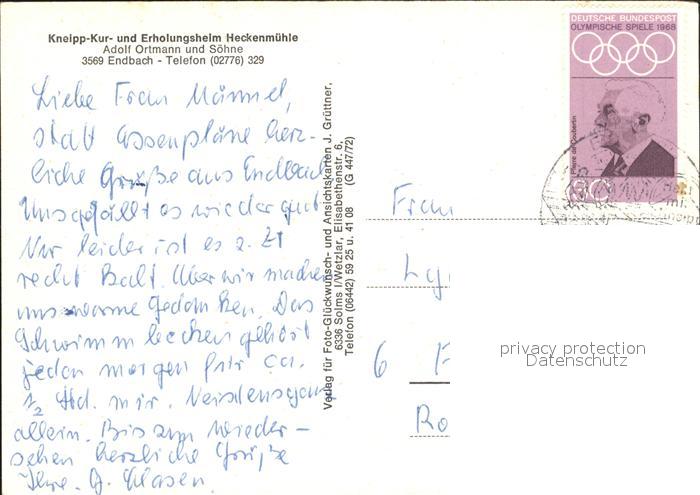 Kneipp-Kur- und Erholungsheim Heckenmühle
Adolf Ortmann und Söhne
3569 Endbach - Telefon (02776) 329
Liebe Frau Männel,
statt Essenpläne herz-
liche Grüße aus Endbach
Uns gefällt es wieder gut
Nur leider ist es z. Zt
recht kalt. Aber wir machen
uns warme Gedanken. Das
Schwimmbecken gehört
jeden morgen für ca.
1/2 Std. mir. ganz
allein. Bis zum wieder-
sehen herzliche Grüße
Ihre G. Clasen
Verlag für Foto-Glückwunsch- und Ansichtskarten J. Grüttner,
6336 Solms I/Wetzlar, Elisabethenstr. 6,
Telefon (06442) 59 25 u. 41 08 (G 447/72)
DEUTSCHE BUNDESPOST
OLYMPISCHE SPIELE 1968
Pierre de Coubertin
Frau
6 F
Ro
privacy protection
Datenschutz